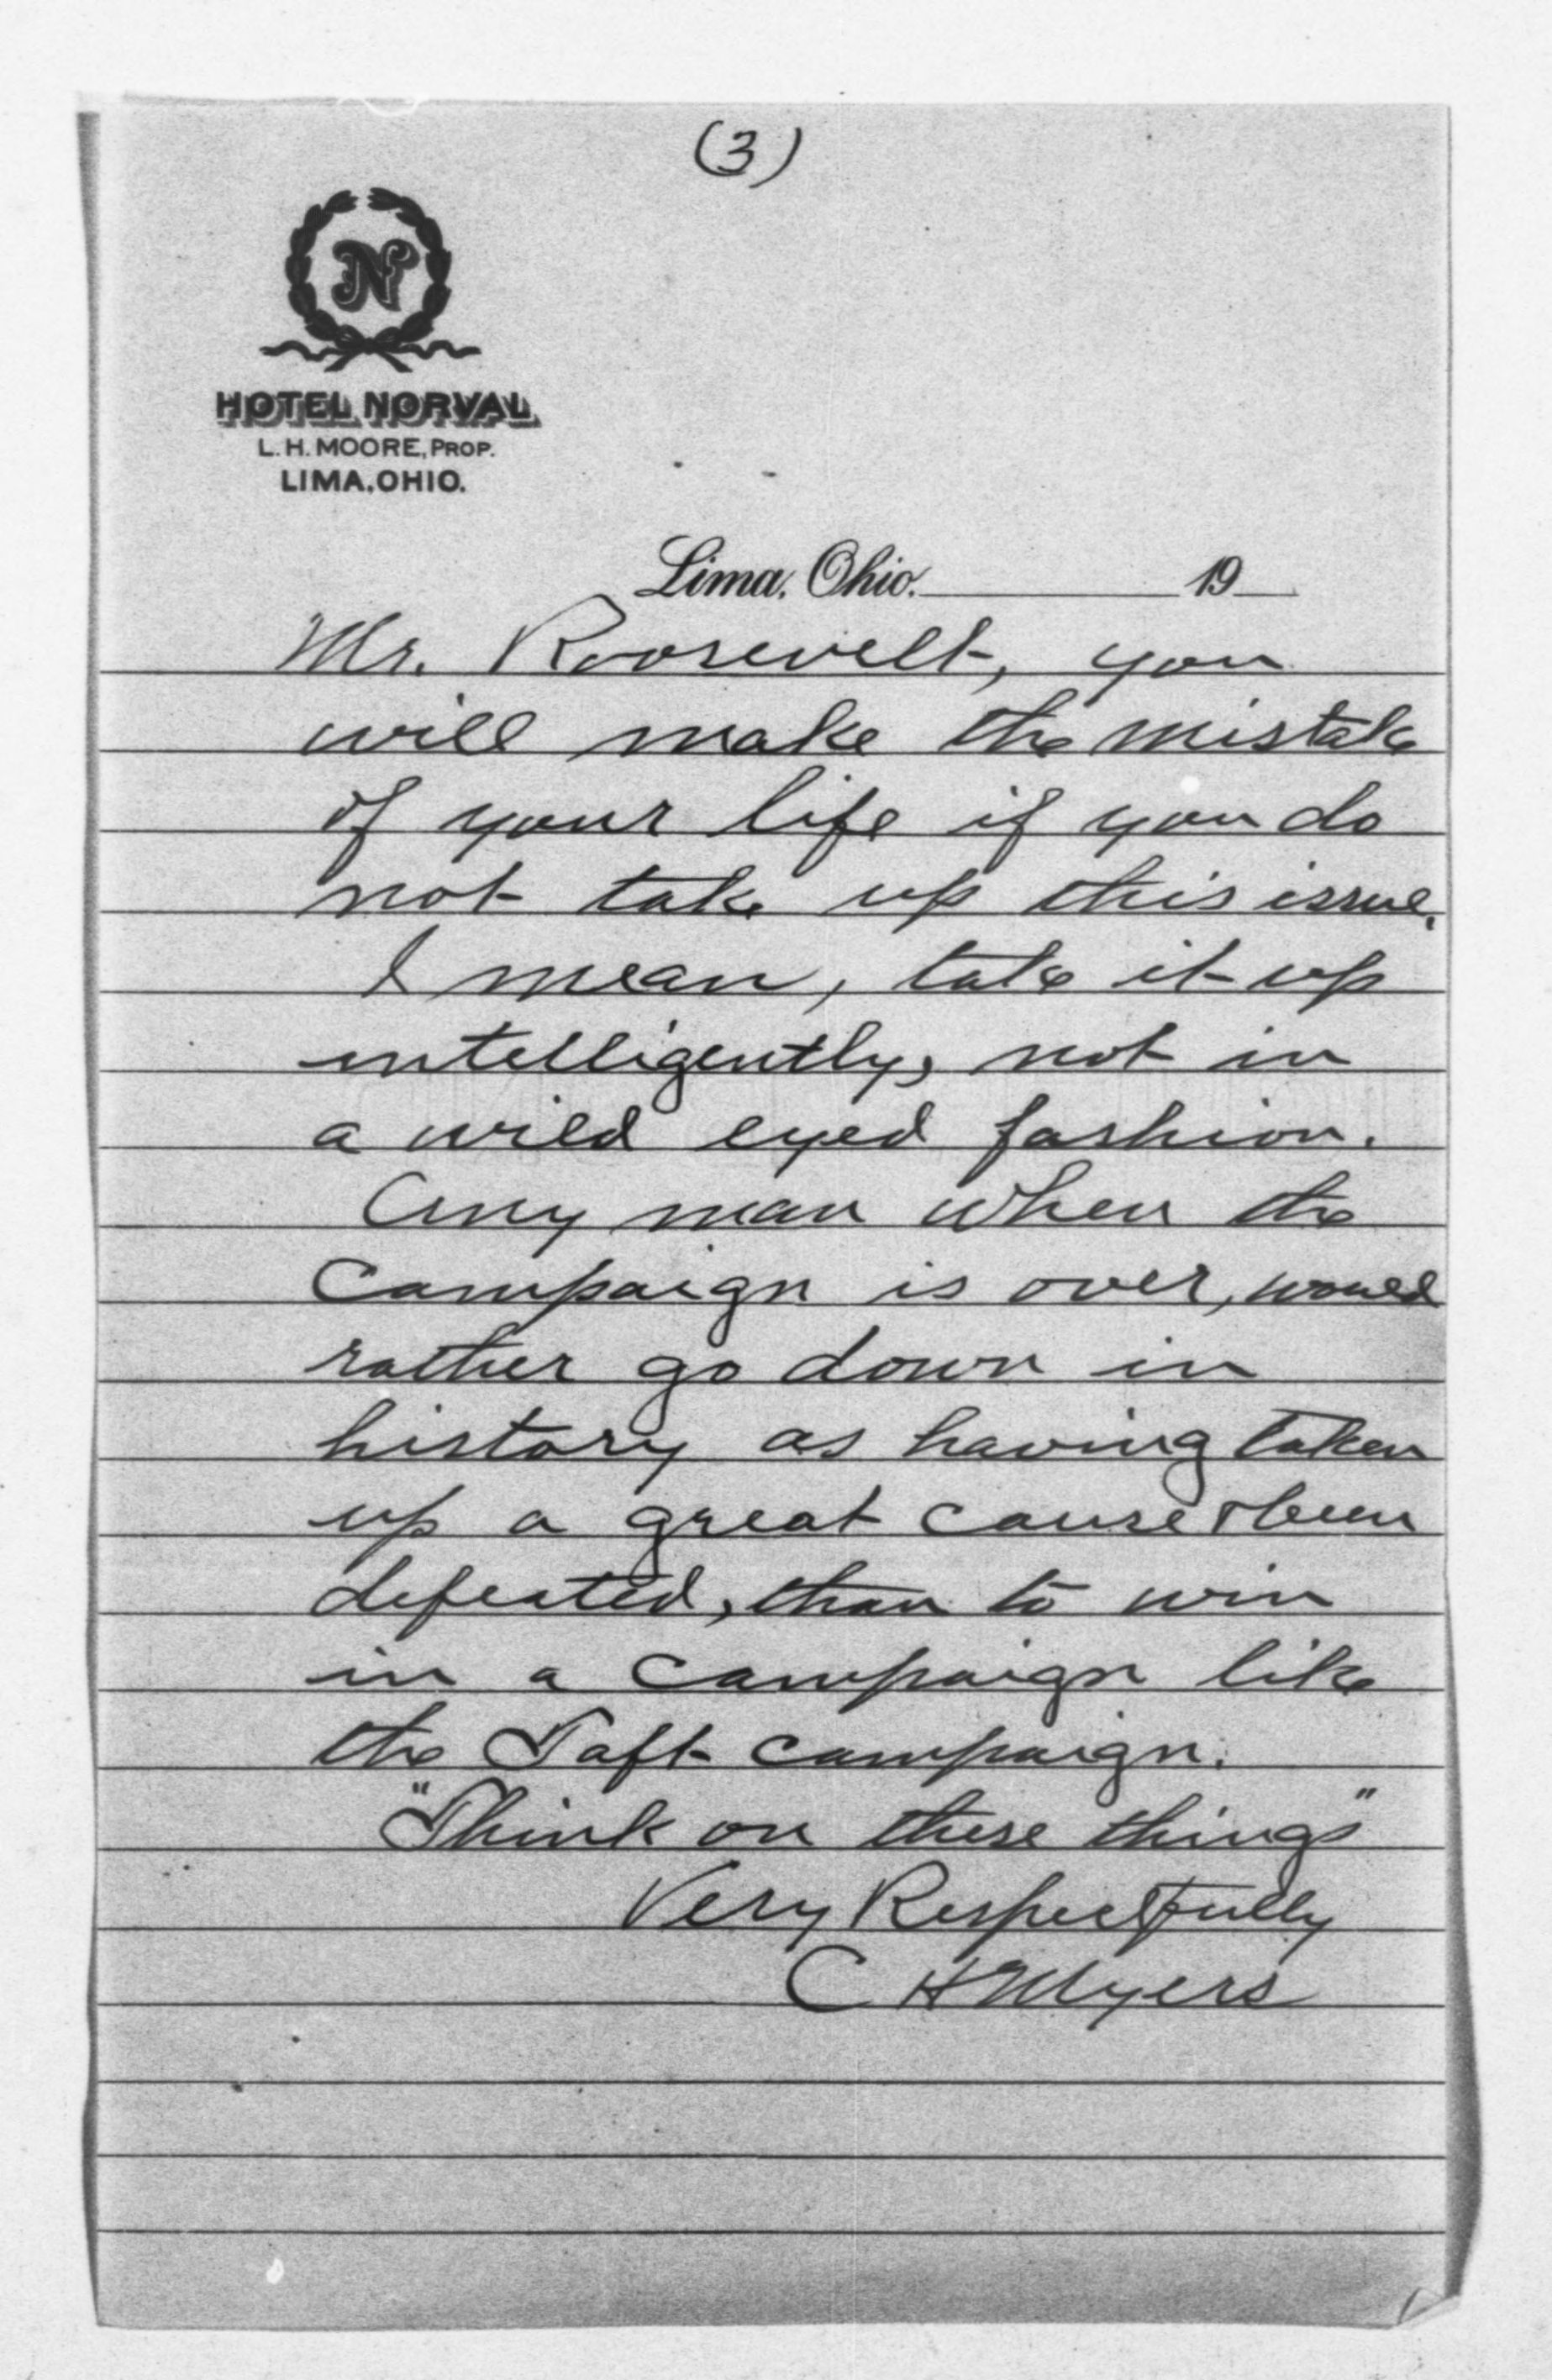 (3)
N
HOTEL NORVAL
L. H. MOORE, PROP.
LIMA, OHIO.
Lima, Ohio. 19
Mr. Roosevelt, you
will make the mistake
of your life if you do
not take up this issue.
I mean, take it up
intelligently, not in
a wild eyed fashion.
Any man when the
campaign is over, would
rather go down in
history as having taken
up a great cause & been
defeated, than to win
in a campaign like
the Taft campaign.
"Think on these things"
Very Respectfully
C H Myers